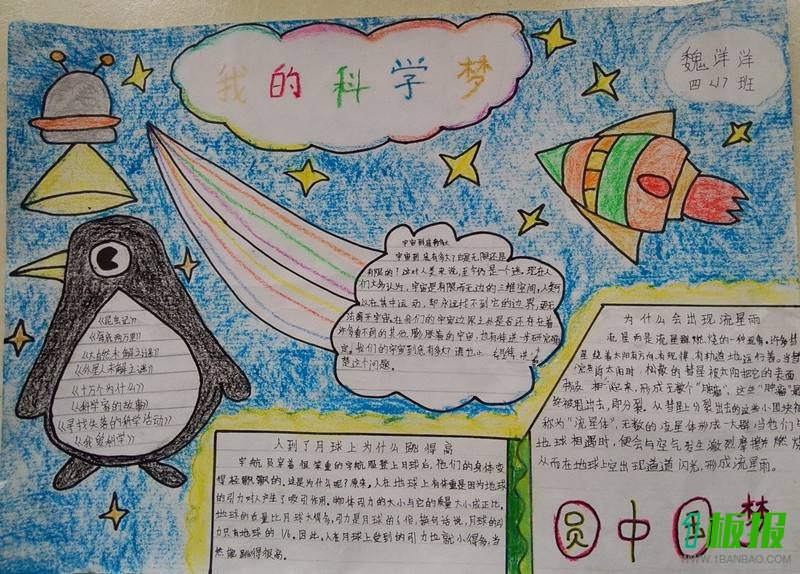 我的科学梦
魏洋洋
四、17班
宇宙到底有多大
宇宙到底有多大？是无限还是
有限的？这对人类来说，至今仍是一个迷。现在人
们大多认为，宇宙是有限而无边的三维空间，人类可
以在其中运动，即永远找不到它的边界，
宇宙。在我们的宇宙边界之外是否还存在着
许多看不到的其他膨胀着的宇宙，也有待进一步研究
定。我们的宇宙到底有多大？谁也
楚这个问题。
《昆虫记》
《海底两万里》
《大自然未解之谜》
《外星人未解之谜》
《十万个为什么》
《科学家的故事》
《寻找失落的科学活动》
《我爱科学》
人到了月球上为什么跳得高
宇航员穿着很笨重的宇航服登上月球后，他们的身体变
得轻飘飘的。这是为什么呢？原来，人在地球上有体重是因为地球
的引力对人产生了吸引作用。物体引力的大小与它的质量大小成正比。
地球的质量比月球大得多，引力是月球的6倍，换句话说，月球的引
力只有地球的1/6。因此，人在月球上受到的引力也就小得多，当
然能跳得很高。
为什么会出现流星雨
流星雨是流星群燃烧的一种现象。许多彗
星绕着太阳方向，有规律、有轨道地运行着。当彗
近太阳时，松散的彗星被太阳把它的表面
起来，形成无数个"肿瘤"，这些"肿瘤"最
终被甩出去，即分裂。从彗星上分裂出去的这些小团块被
称为"流星体"，无数的流星体形成一大群，当他们与
地球相遇时，便会与空气发生激烈摩擦并燃烧
从而在地球上空出现道道闪光，形成流星雨。
圆中国梦
板报
WWW.1BANBAO.COM